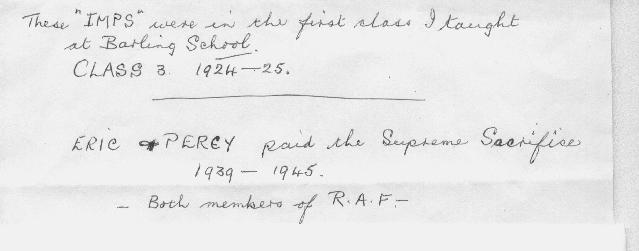 These "IMPS" were in the first class I taught
at Barling School.
CLASS 3. 1924—25.
ERIC & PERCY paid the Supreme Sacrifise
1939 — 1945.
— Both members of R.A.F.—